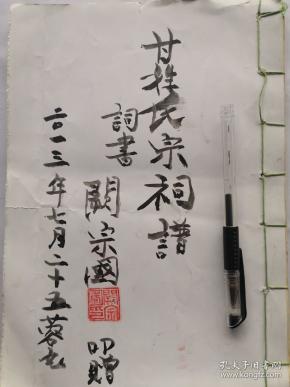 甘姓氏宗祠譜
詞書 關宗國 叩贈
二〇一三年七月二十五蓉 
孔夫子旧书网